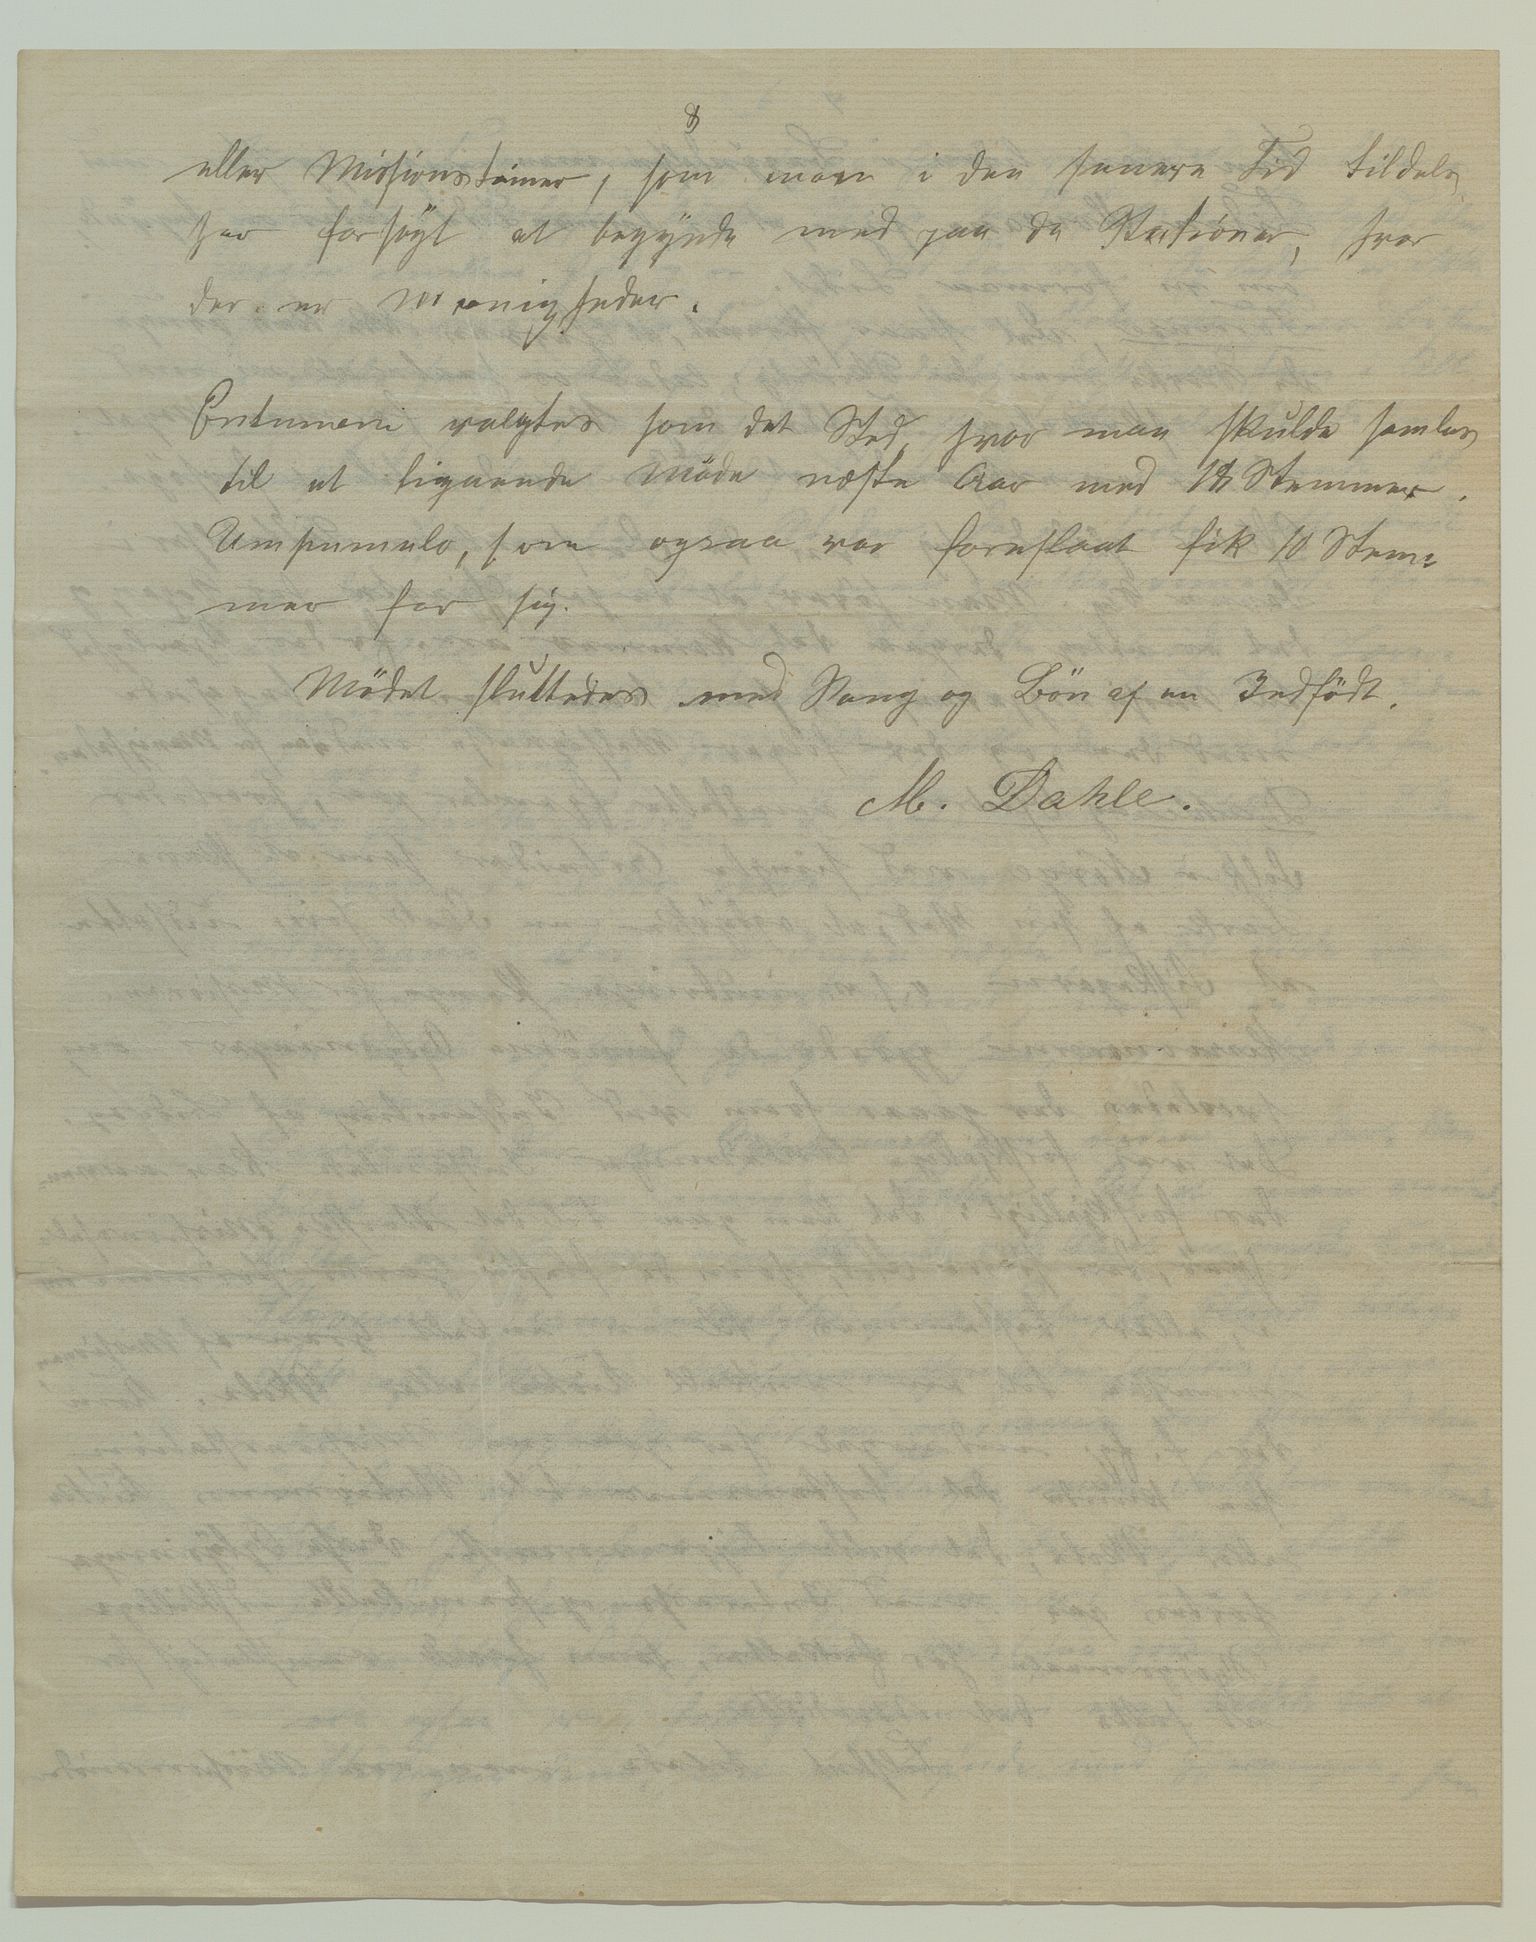 8
eller Missionstimer, som man i den senere Tid tildels
har forsøgt at begynde med paa de Stationer, hvor
der er Menigheder.
Entumeni valgtes som det Sted, hvor man skulde samles
til et lignende Møde næste Aar med 18 Stemmer.
Umpumulo, som ogsaa var foreslaat fik 10 Stem=
mer for sig.
Mødet sluttedes med Sang og Bøn af en Indfødt.
M. Dahle.